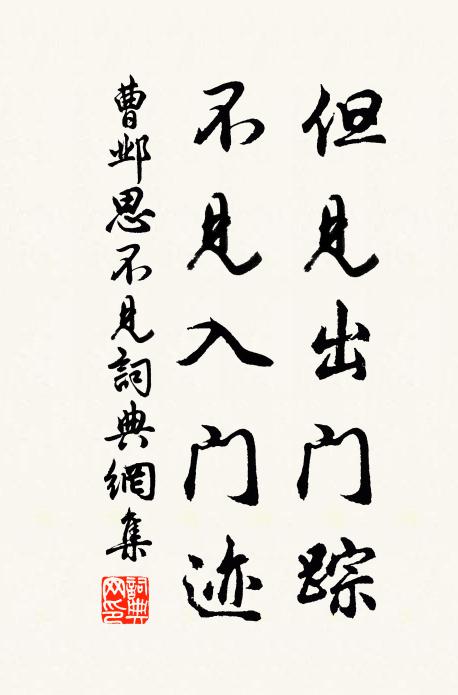 但见出门踪
不见入门迹
曹邺思不见詞典網集
詞典网印